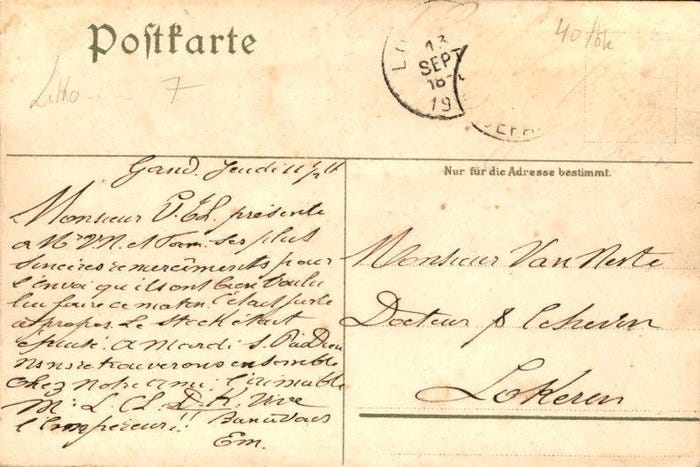 Postkarte
40/bk
Litho 7
13
SEPT
19
Nur für die Adresse bestimmt.
Gand. Jeudi 11
Monsieur V. EL. présente
a Mr V.N. et fam. ses plus
sincères remerciments pour
l'envoi qu'ils ont bien voulu
lui faire ce matin. C'était juste
à propos. Le stock était
épuisé. a Mardi s.
Nous retrouverons ensemble
chez notre ami. l'aimable
Mr L. CL. D. K. Vive
l'Empereur!!
Em.
Monsieur Van Nerte
Docteur
Lokeren